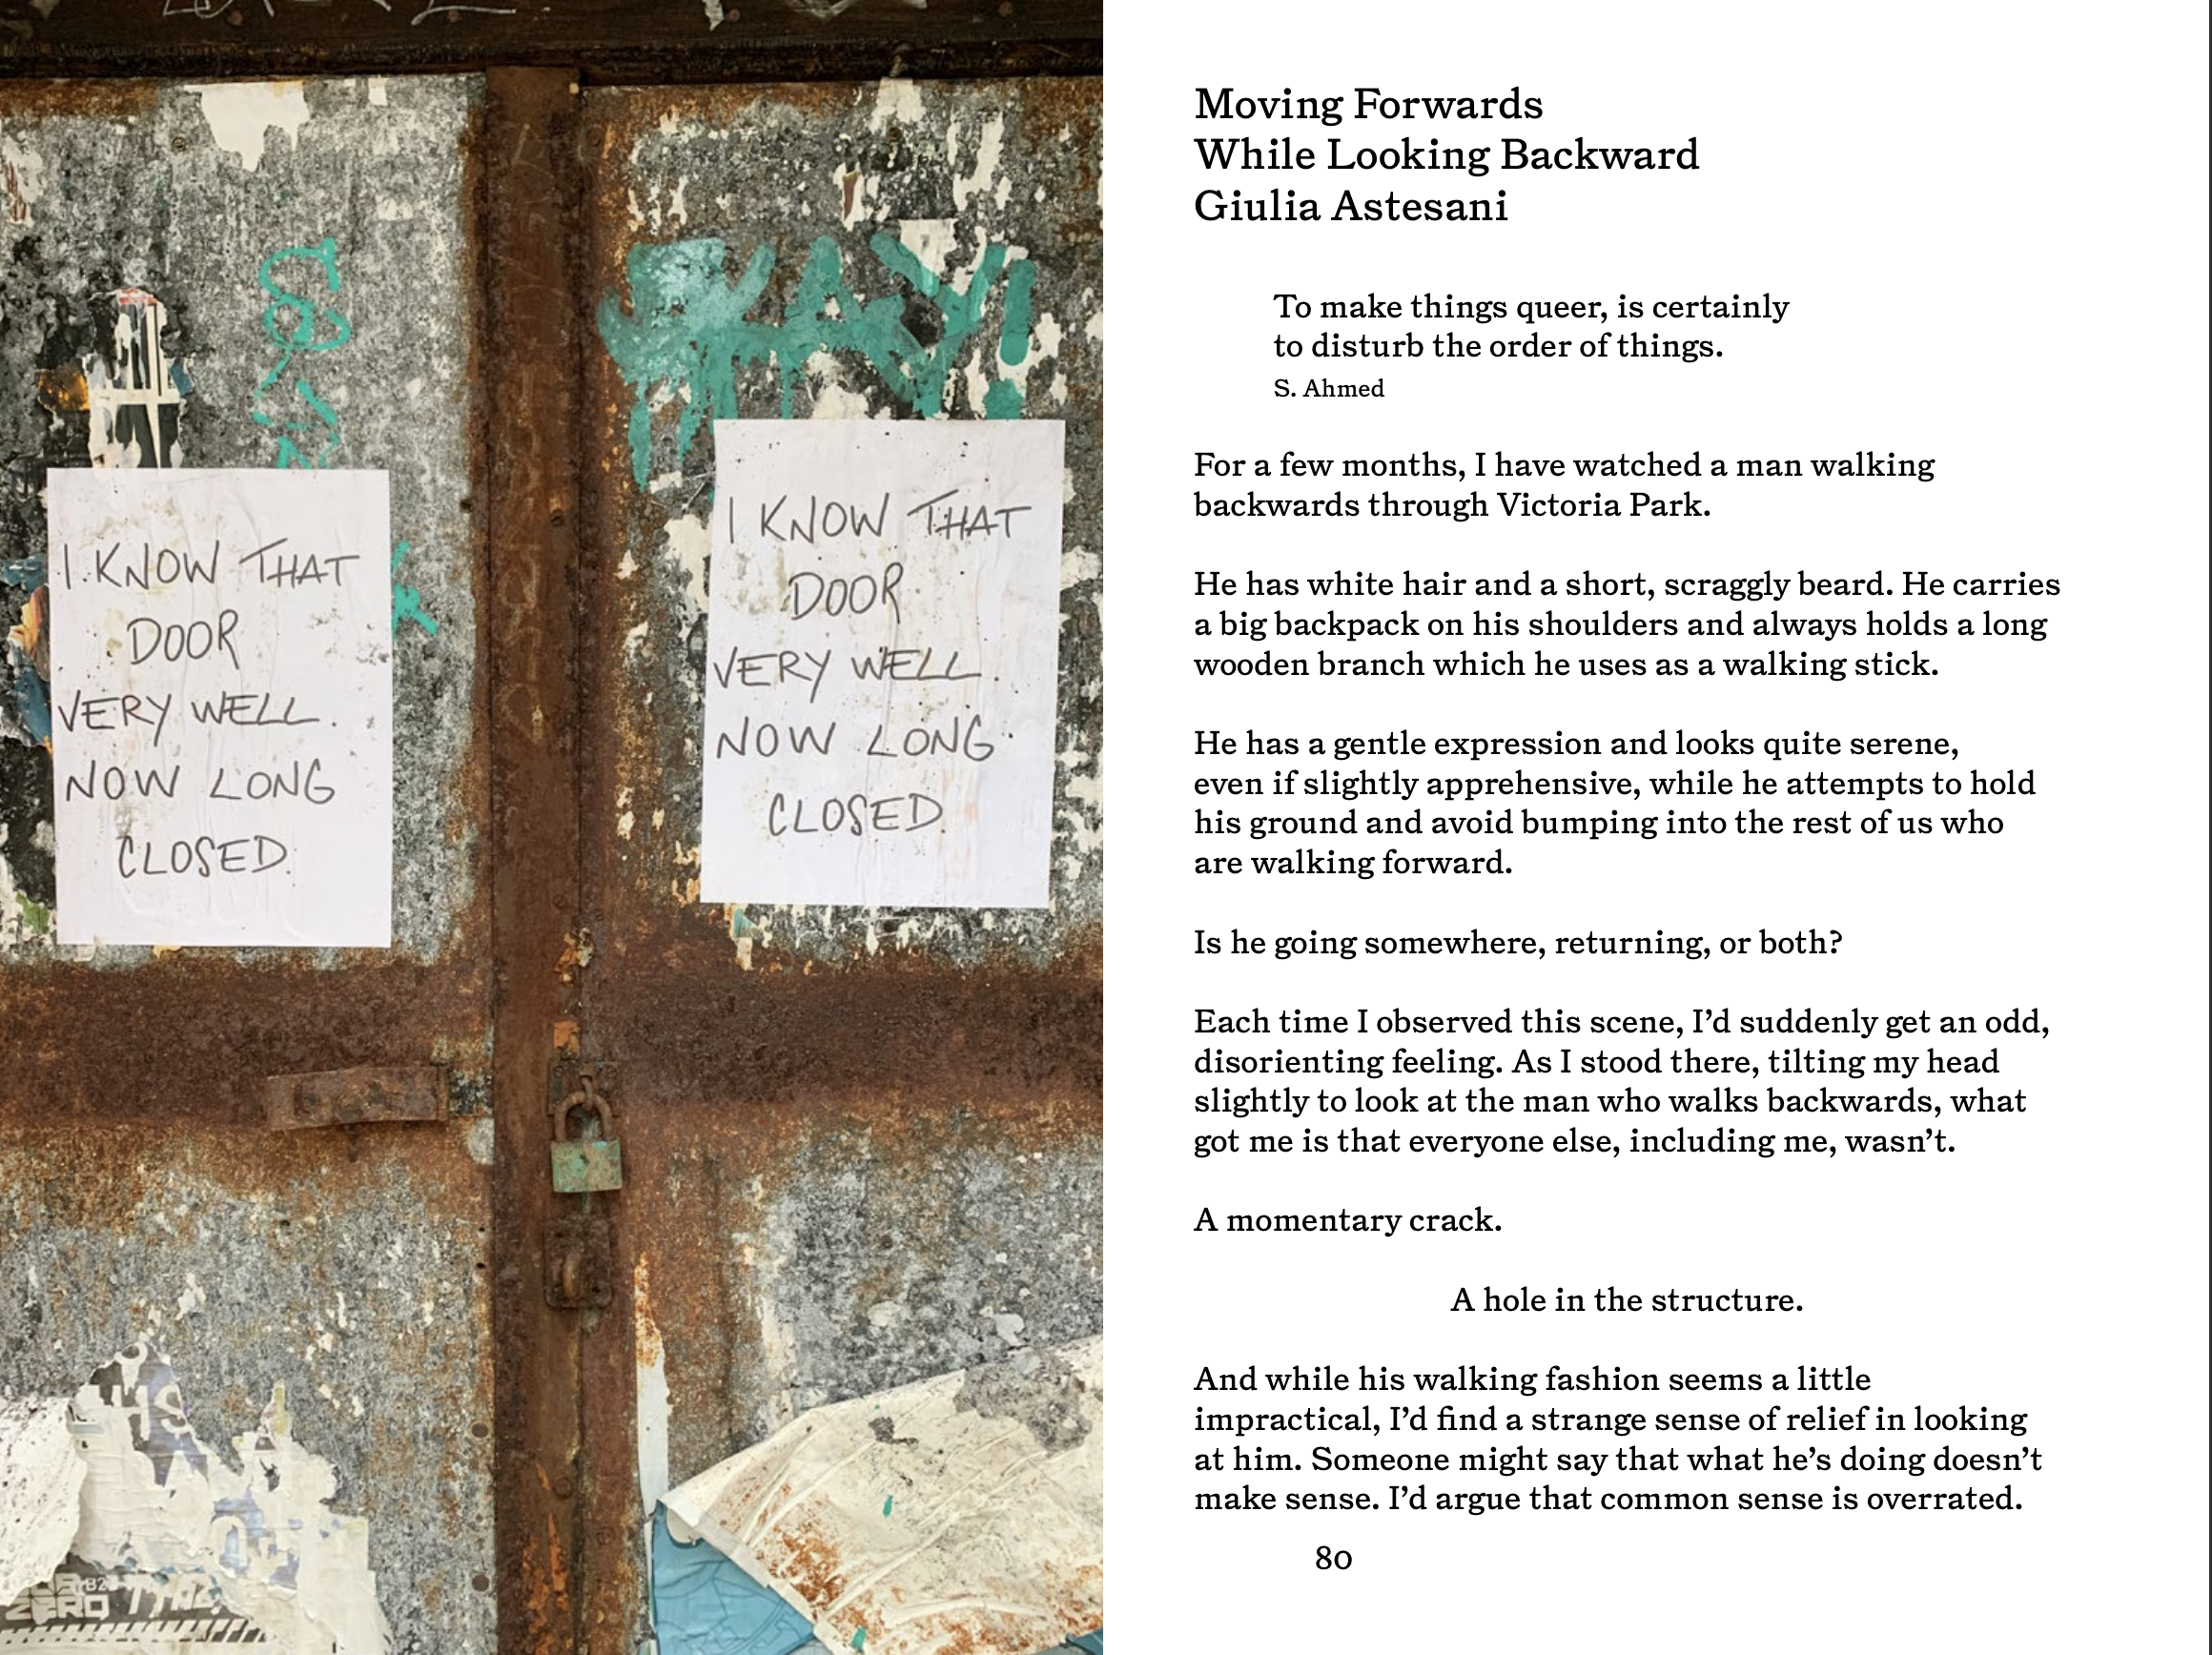 I KNOW THAT
DOOR
VERY WELL.
NOW LONG
CLOSED.
I KNOW THAT
DOOR
VERY WELL.
NOW LONG
CLOSED.
ZERO
Moving Forwards
While Looking Backward
Giulia Astesani
To make things queer, is certainly
to disturb the order of things.
S. Ahmed
For a few months, I have watched a man walking
backwards through Victoria Park.
He has white hair and a short, scraggly beard. He carries
a big backpack on his shoulders and always holds a long
wooden branch which he uses as a walking stick.
He has a gentle expression and looks quite serene,
even if slightly apprehensive, while he attempts to hold
his ground and avoid bumping into the rest of us who
are walking forward.
Is he going somewhere, returning, or both?
Each time I observed this scene, I’d suddenly get an odd,
disorienting feeling. As I stood there, tilting my head
slightly to look at the man who walks backwards, what
got me is that everyone else, including me, wasn’t.
A momentary crack.
A hole in the structure.
And while his walking fashion seems a little
impractical, I’d find a strange sense of relief in looking
at him. Someone might say that what he’s doing doesn’t
make sense. I’d argue that common sense is overrated.
80